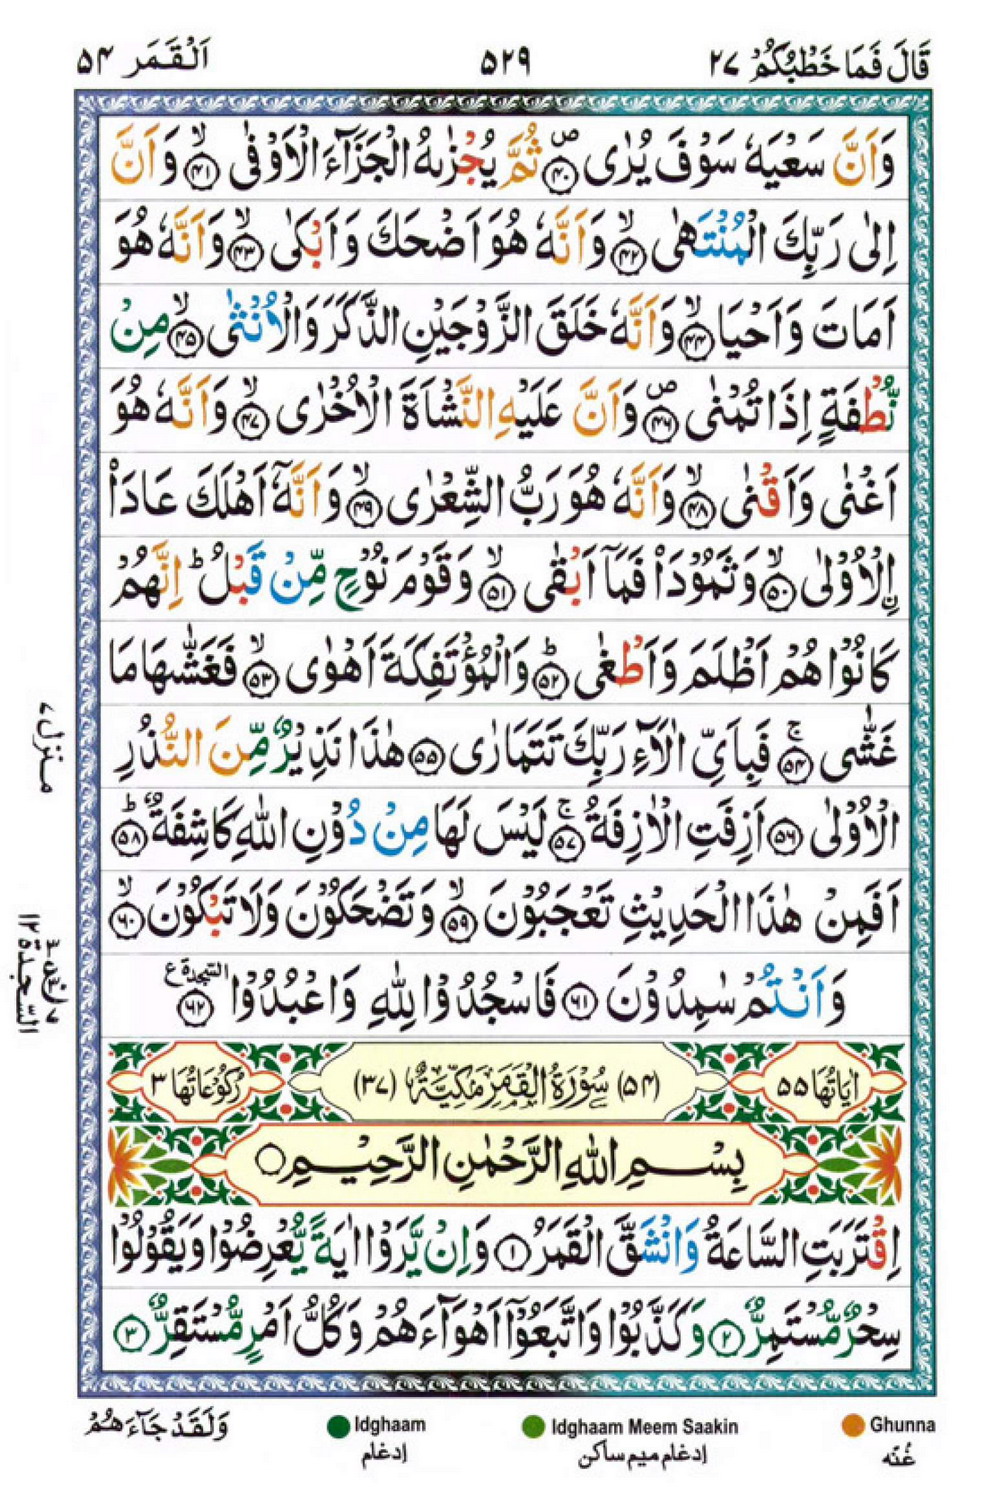 قَالَ فَمَا خَطْبُكُمْ ۲۷
۵۲۹
اَلْقَمَر ۵۴
وَاَنَّ سَعْیَهٗ سَوْفَ یُرٰی ۪﴿۴۰﴾ ثُمَّ یُجْزٰىهُ الْجَزَآءَ الْاَوْفٰی ۙ﴿۴۱﴾ وَ اَنَّ
اِلٰی رَبِّكَ الْمُنْتَهٰی ۙ﴿۴۲﴾ وَاَنَّهٗ هُوَ اَضْحَكَ وَ اَبْكٰی ۙ﴿۴۳﴾ وَاَنَّهٗ هُوَ
اَمَاتَ وَ اَحْیَا ۙ﴿۴۴﴾ وَاَنَّهٗ خَلَقَ الزَّوْجَیْنِ الذَّكَرَ وَالْاُنْثٰی ۙ﴿۴۵﴾ مِنْ
نُّطْفَةٍ اِذَا تُمْنٰی ۪﴿۴۶﴾ وَ اَنَّ عَلَیْهِ النَّشْاَةَ الْاُخْرٰی ۙ﴿۴۷﴾ وَ اَنَّهٗ هُوَ
اَغْنٰی وَ اَقْنٰی ۙ﴿۴۸﴾ وَاَنَّهٗ هُوَ رَبُّ الشِّعْرٰی ۙ﴿۴۹﴾ وَ اَنَّهٗۤ اَهْلَكَ عَادَاۨ
الْاُوْلٰی ۙ﴿۵۰﴾ وَ ثَمُوْدَاۡ فَمَاۤ اَبْقٰی ۙ﴿۵۱﴾ وَ قَوْمَ نُوْحٍ مِّنْ قَبْلُ ؕ اِنَّهُمْ
كَانُوْا هُمْ اَظْلَمَ وَ اَطْغٰی ؕ﴿۵۲﴾ وَالْمُؤْتَفِكَةَ اَهْوٰی ۙ﴿۵۳﴾ فَغَشّٰىهَا مَا
غَشّٰی ۚ﴿۵۴﴾ فَبِاَیِّ اٰلَآءِ رَبِّكَ تَتَمَارٰی ﴿۵۵﴾ هٰذَا نَذِیْرٌ مِّنَ النُّذُرِ
الْاُوْلٰی ﴿۵۶﴾ اَزِفَتِ الْاٰزِفَةُ ۚ﴿۵۷﴾ لَیْسَ لَهَا مِنْ دُوْنِ اللّٰهِ كَاشِفَةٌ ؕ﴿۵۸﴾
اَفَمِنْ هٰذَا الْحَدِیْثِ تَعْجَبُوْنَ ۙ﴿۵۹﴾ وَ تَضْحَكُوْنَ وَ لَا تَبْكُوْنَ ۙ﴿۶۰﴾
وَ اَنْتُمْ سٰمِدُوْنَ ﴿۶۱﴾ فَاسْجُدُوْا لِلّٰهِ وَ اعْبُدُوْا ﴿۶۲﴾ السجدة ع
منزل ۷
السَّجدة ۱۲
اٰیَاتُهَا ۵۵
(۵۴) سُوْرَةُ الْقَمَرِ مَكِّیَّةٌ (۳۷)
رُكُوْعَاتُهَا ۳
بِسْمِ اللّٰهِ الرَّحْمٰنِ الرَّحِیْمِ
اِقْتَرَبَتِ السَّاعَةُ وَانْشَقَّ الْقَمَرُ ﴿۱﴾ وَاِنْ یَّرَوْا اٰیَةً یُّعْرِضُوْا وَیَقُوْلُوْا
سِحْرٌ مُّسْتَمِرٌّ ﴿۲﴾ وَ كَذَّبُوْا وَاتَّبَعُوْۤا اَهْوَآءَهُمْ وَ كُلُّ اَمْرٍ مُّسْتَقِرٌّ ﴿۳﴾
وَلَقَدْ جَآءَهُمْ
Idghaam
ادغام
Idghaam Meem Saakin
ادغام میم ساکن
Ghunna
غُنّه